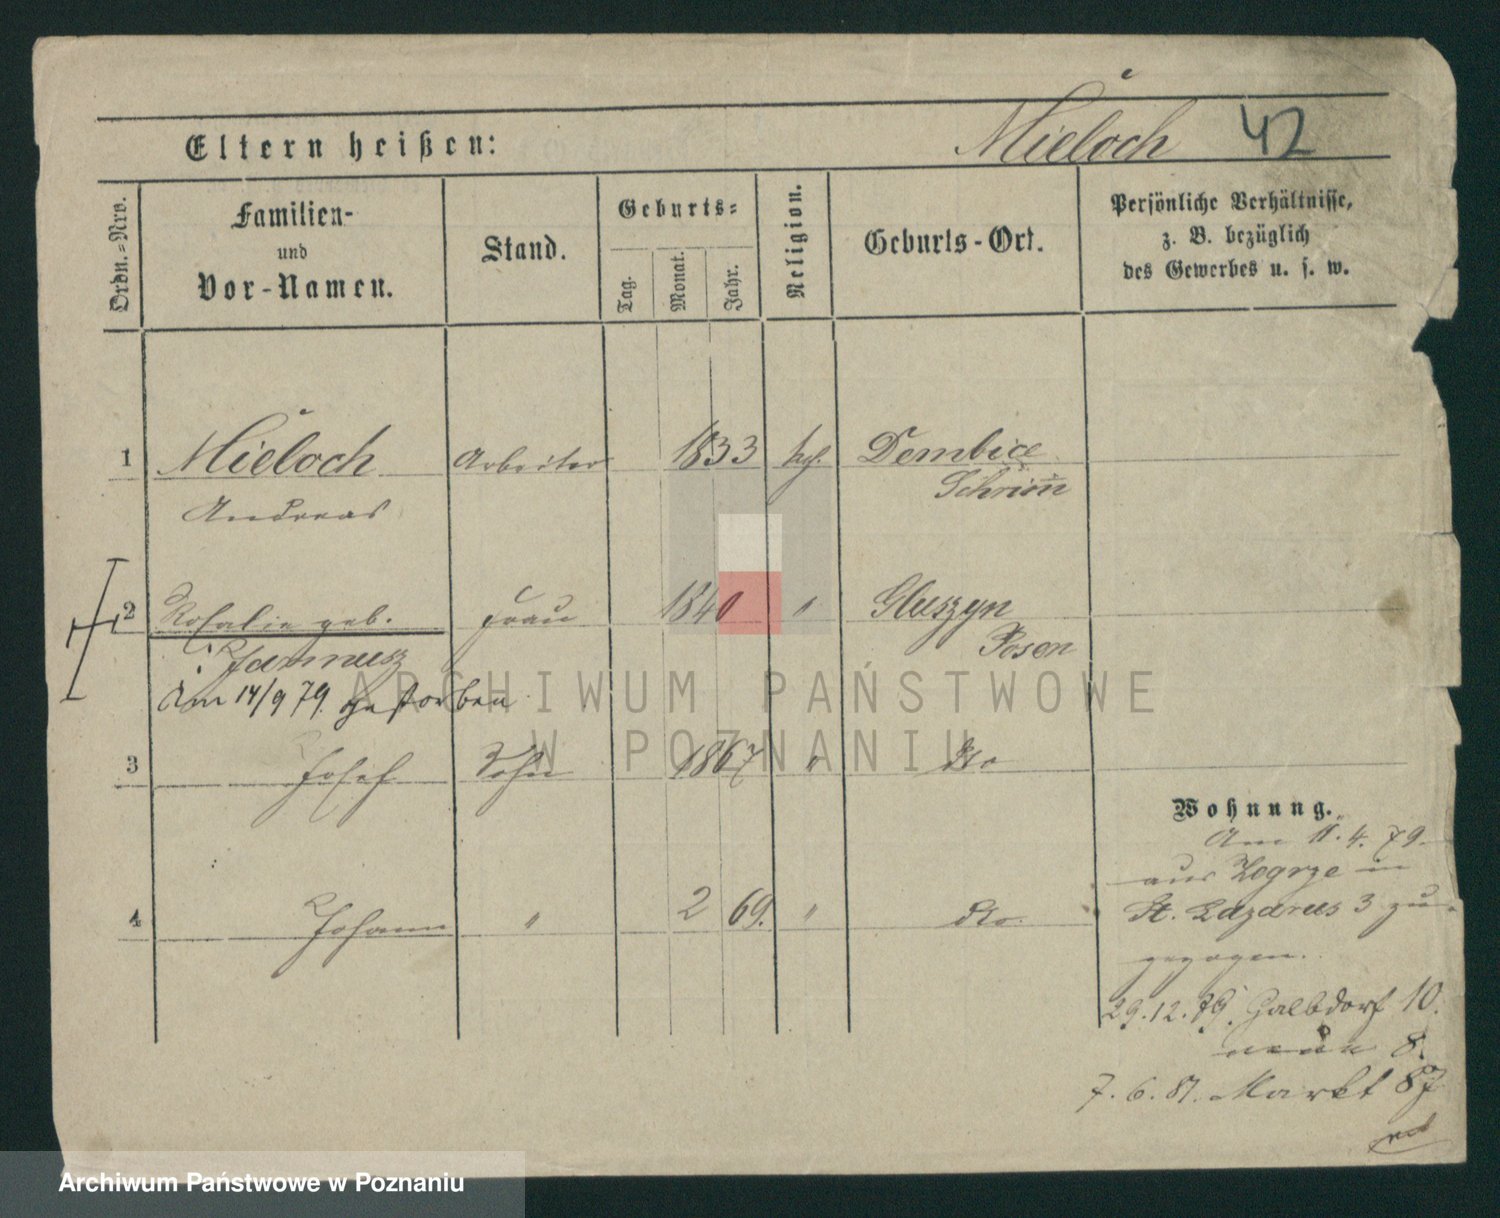 Eltern heißen: Mieloch 42
Ordn.=Nro.
Familien-
und
Vor-Namen.
Stand.
Geburts=
Tag.
Monat.
Jahr.
Religion.
Geburts-Ort.
Persönliche Verhältnisse,
z. B. bezüglich
des Gewerbes u. s. w.
1 Mieloch Arbeiter 1833 kth. Dembice
Schrimm
Andreas
2 Rosalie geb. Frau 1840 " Gluszyn
Posen
Jannusz
Am 14/9 79. gestorben
3 Josef Sohn 1867 " dto
4 Johann " 2 69. " dto.
Wohnung.
Am 11. 4. 79.
aus Zegrze in
St. Lazarus 3 zu-
gezogen.
29.12.79. Halbdorf 10.
neue 8.
7. 6. 81. Markt 87
ARCHIWUM PAŃSTWOWE
W POZNANIU
Archiwum Państwowe w Poznaniu